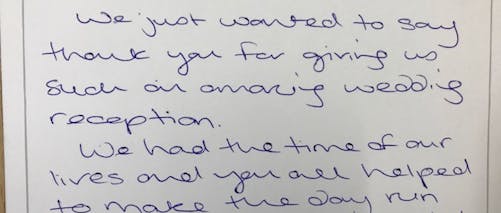 We just wanted to say
thank you for giving us
such an amazing wedding
reception.
We had the time of our
lives and you all helped
to make the day run